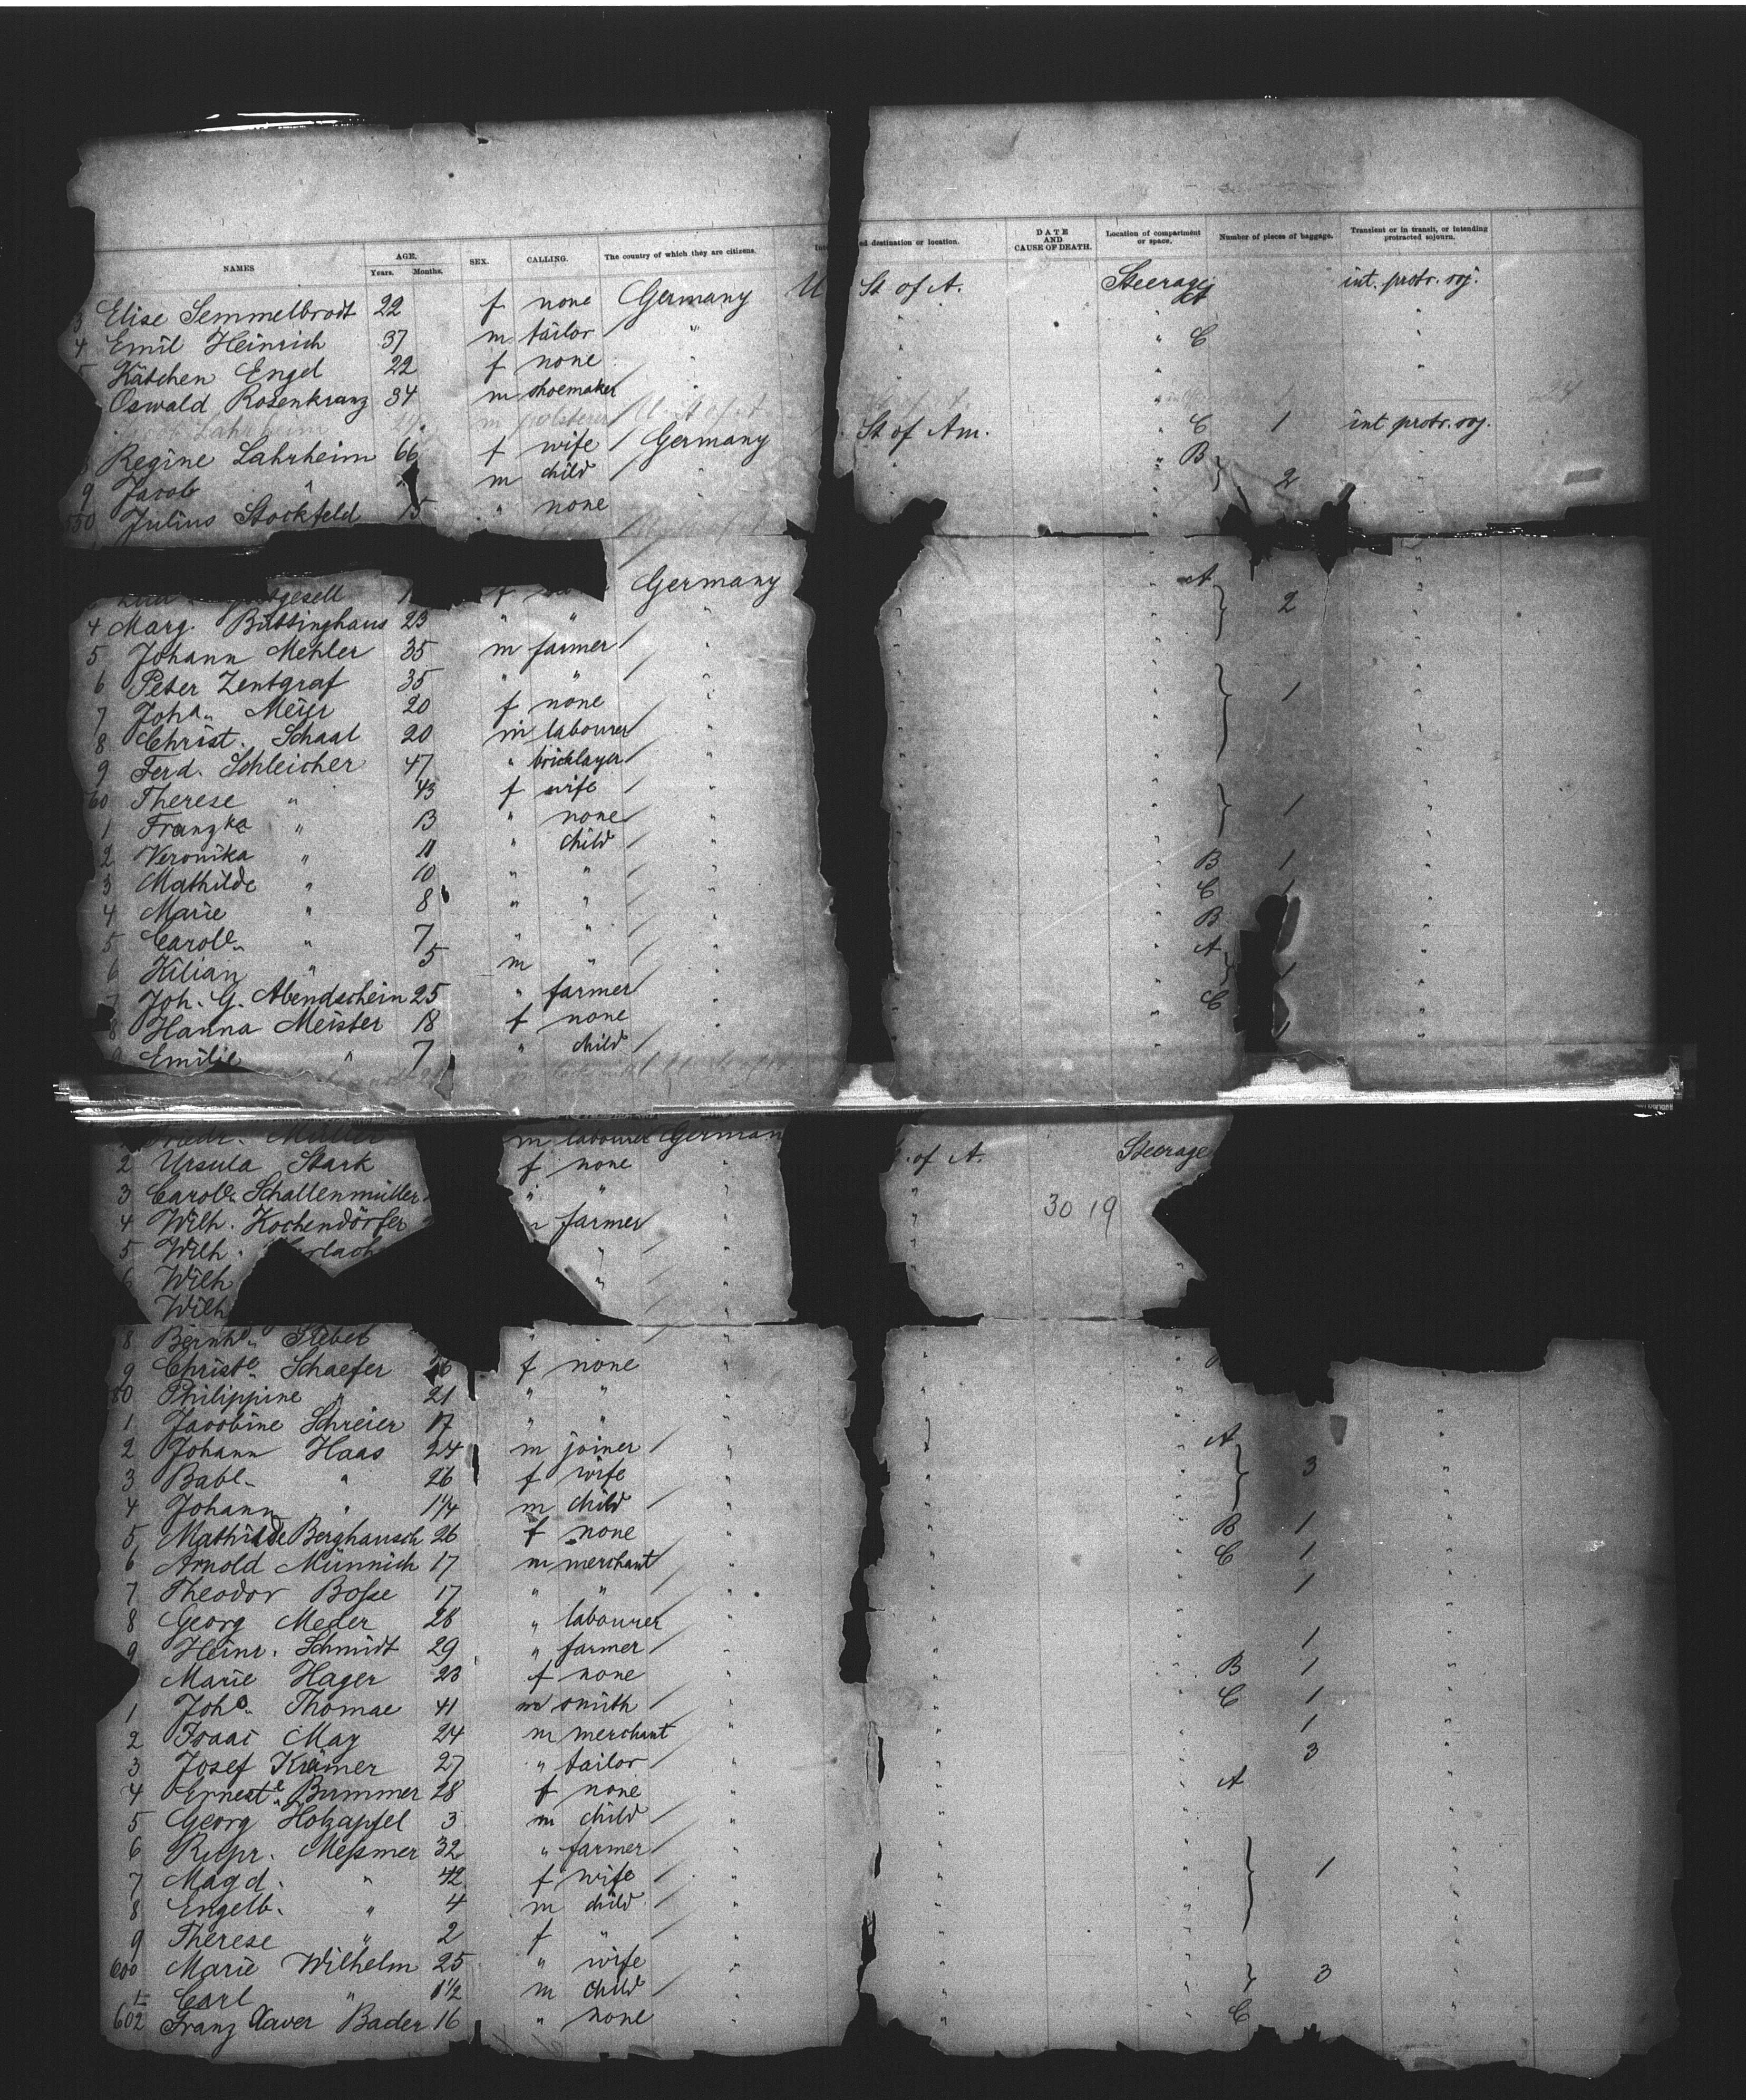 NAMES AGE. Years. Months. SEX. CALLING. The country of which they are citizens. ed destination or location. DATE AND CAUSE OF DEATH. Location of compartment or space. Number of pieces of baggage. Transient or in transit, or intending protracted sojourn.
3 Elise Semmelbrodt 22 f none Germany U St of A. Steerage int. protr. soj.
4 Emil Heinrich 37 m tailor " " " "
5 Kätchen Engel 22 f none " " " C "
Oswald Rosenkranz 34 m shoemaker " " " "
Lahrheim m
Regine Lahrheim 66 f wife Germany St of Am. " C 1 int protr. soj.
9 Jacob " m child " " " B "
550 Julius Stockfeld 15 " none " 2
gesell f Germany A
4 Marg. Büttinghaus 23 " " " 2
5 Johann Mehler 35 m farmer "
6 Peter Zentgraf 35 " " "
7 Joha. Meier 20 f none " 1
8 Christ. Schaal 20 m labourer "
9 Ferd. Schleicher 47 " bricklayer "
60 Therese " 43 f wife "
1 Franzka " 13 " none " 1
2 Veronika " 11 " child "
3 Mathilde " 10 " " " B 1
4 Marie " 8 " " " C
5 Carole. " 7 " " " B
6 Kilian " 5 m " " A
7 Joh. G. Abendschein 25 " farmer "
8 Hanna Meister 18 f none " C
9 Emilie " 7 " child "
Friedr. Müller m labourer German
2 Ursula Stark f none " . of A. Steerage
3 Carole. Schallenmüller " " "
4 Wilh. Kochendörfer " farmer " 30 19
5 Wilh. " "
6 Wilh " "
Wilh
8 Bernhd. Siebel " " "
9 Christe. Schaefer 26 f none "
80 Philippine " 21 " " "
1 Jacobine Schreier 17 " " "
2 Johann Haas 24 m joiner " A
3 Babe. " 26 f wife " 3
4 Johann " 1 1/4 m child "
5 Mathilde Berghausch 26 f none " B 1
6 Arnold Münnich 17 m merchant " C 1
7 Theodor Bosse 17 " " " 1
8 Georg Meder 28 " labourer "
9 Heinr. Schmidt 29 " farmer " 1
Marie Hager 23 f none " B 1
1 Joha. Thomae 41 m smith " C 1
2 Isaac May 24 m merchant " 1
3 Josef Krämer 27 " tailor " 3
4 Erneste. Bummer 28 f none " A
5 Georg Holzapfel 3 m child "
6 Rupr. Messmer 32 " farmer "
7 Magd. " 42 f wife " 1
8 Engelb. " 4 m child "
9 Therese " 2 f " "
600 Marie Wilhelm 25 " wife "
1 Carl " 1 1/2 m child " 3
602 Franz Xaver Bader 16 " none " C